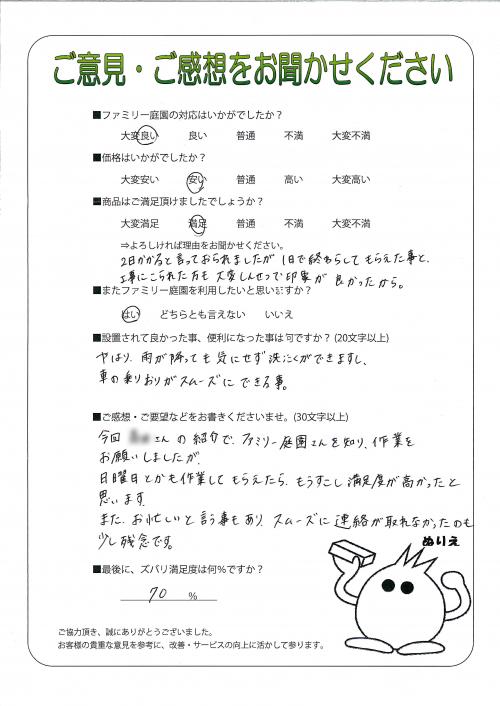 ご意見・ご感想をお聞かせください
■ファミリー庭園の対応はいかがでしたか？
大変良い 良い 普通 不満 大変不満
■価格はいかがでしたか？
大変安い 安い 普通 高い 大変高い
■商品はご満足頂けましたでしょうか？
大変満足 満足 普通 不満 大変不満
⇒よろしければ理由をお聞かせください。
2日かかると言っておられましたが 1日で終わらしてもらえた事と、
工事にこられた方も 大変しんせつで印象が 良かったから。
■またファミリー庭園を利用したいと思いますか？
はい どちらとも言えない いいえ
■設置されて良かった事、便利になった事は何ですか？(20文字以上)
やはり、雨が降っても気にせず洗たくができますし、
車の乗りおりがスムーズにできる事。
■ご感想・ご要望などをお書きくださいませ。(30文字以上)
今回 さんの紹介で、ファミリー庭園さんを知り、作業を
お願いしましたが、
日曜日とかも作業してもらえたら、もうすこし満足度が高かったと
思います。
また、お忙しいと言う事もあり、スムーズに連絡が取れなかったのも
少し残念です。
ぬりえ
■最後に、ズバリ満足度は何％ですか？
70 %
ご協力頂き、誠にありがとうございました。
お客様の貴重な意見を参考に、改善・サービスの向上に活かして参ります。